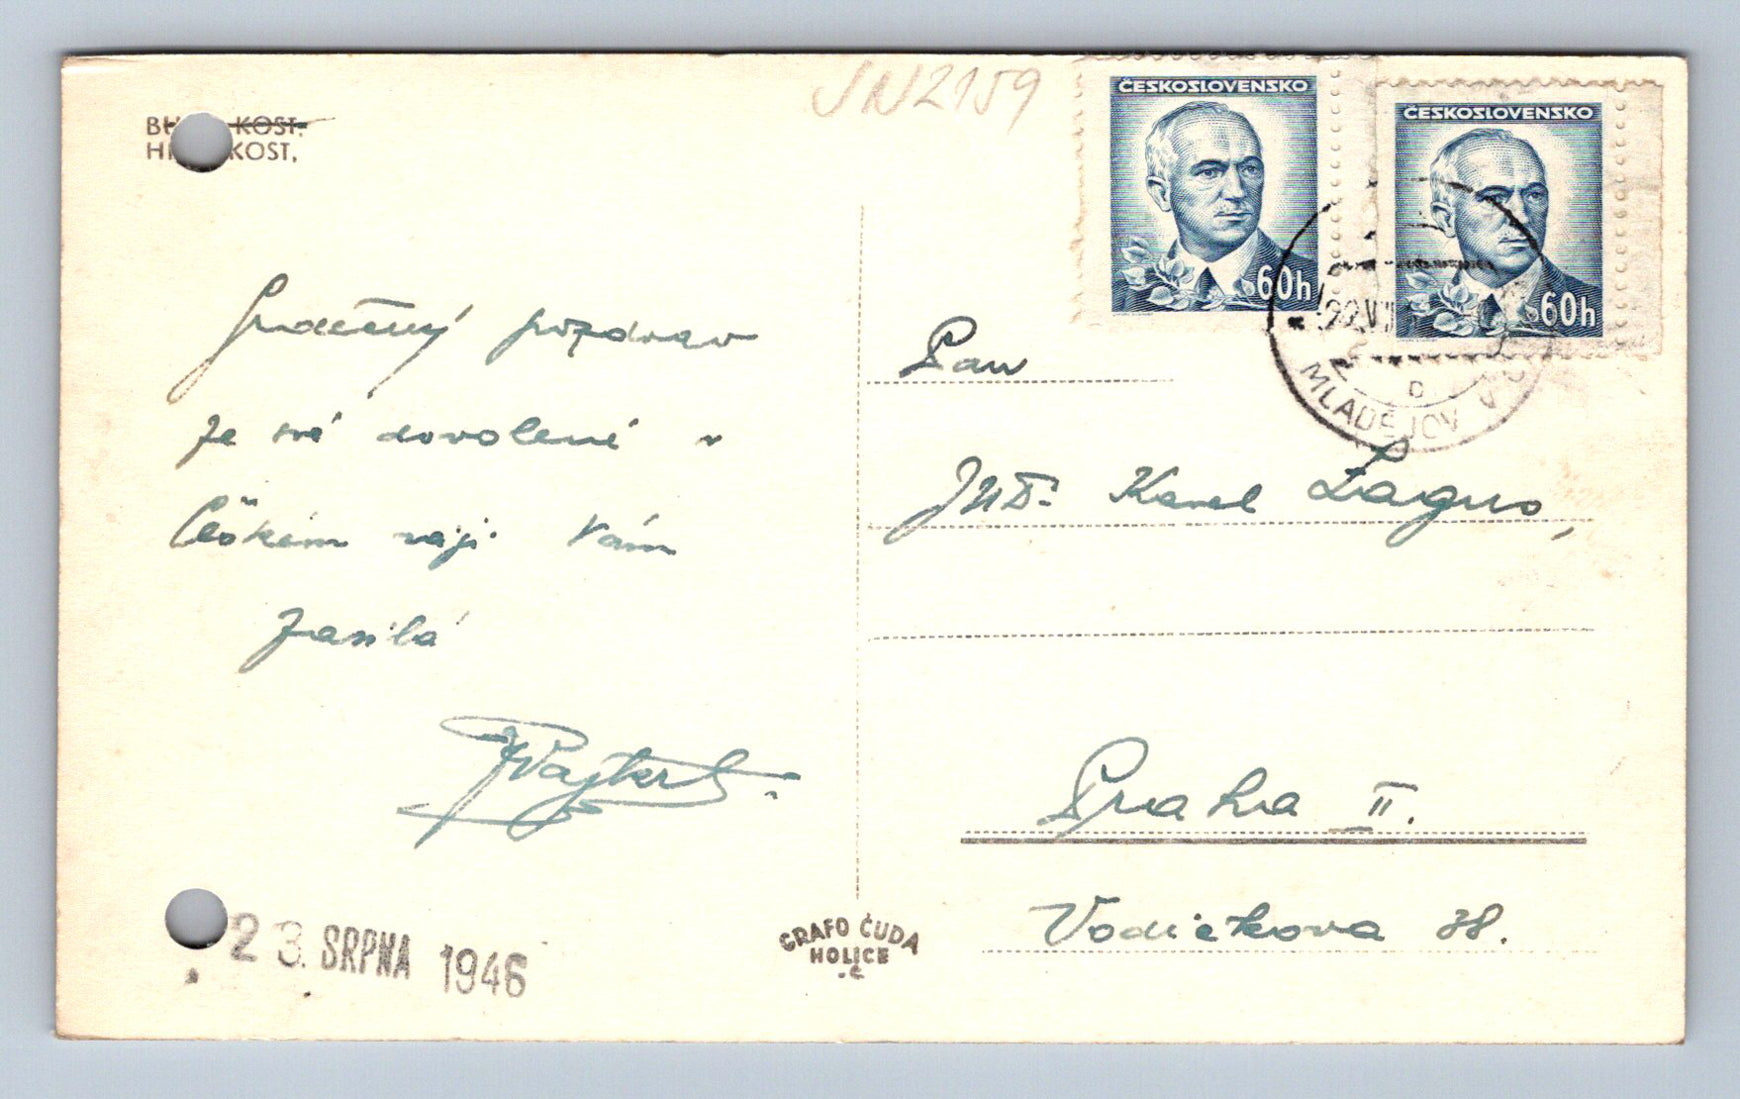 KOST.
KOST,
JN2159
ČESKOSLOVENSKO
60h
ČESKOSLOVENSKO
60h
MLADĚJOV V Č
D
Srdečný pozdrav
ze své dovolené v
Českém ráji Vám
zasílá
Pan
JUDr Karel Lagus,
Praha II.
Vodičkova 38.
23. SRPNA 1946
GRAFO ČUDA
HOLICE